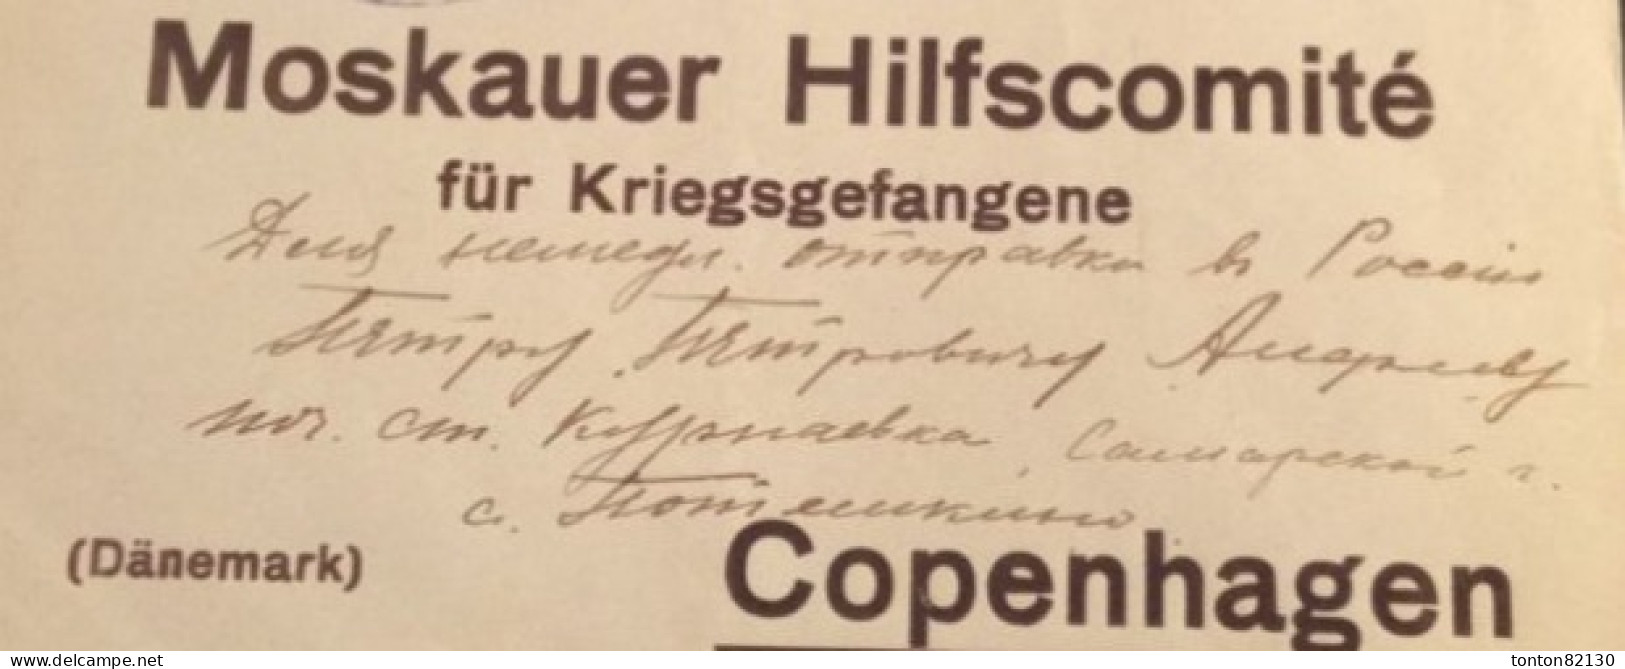 Moskauer Hilfscomité
für Kriegsgefangene
Для немедл. отправки в Россию
Петру Петровичу
поч. ст. Самарской г.
с. Потемкино
(Dänemark)
Copenhagen
www.delcampe.net
tonton82130